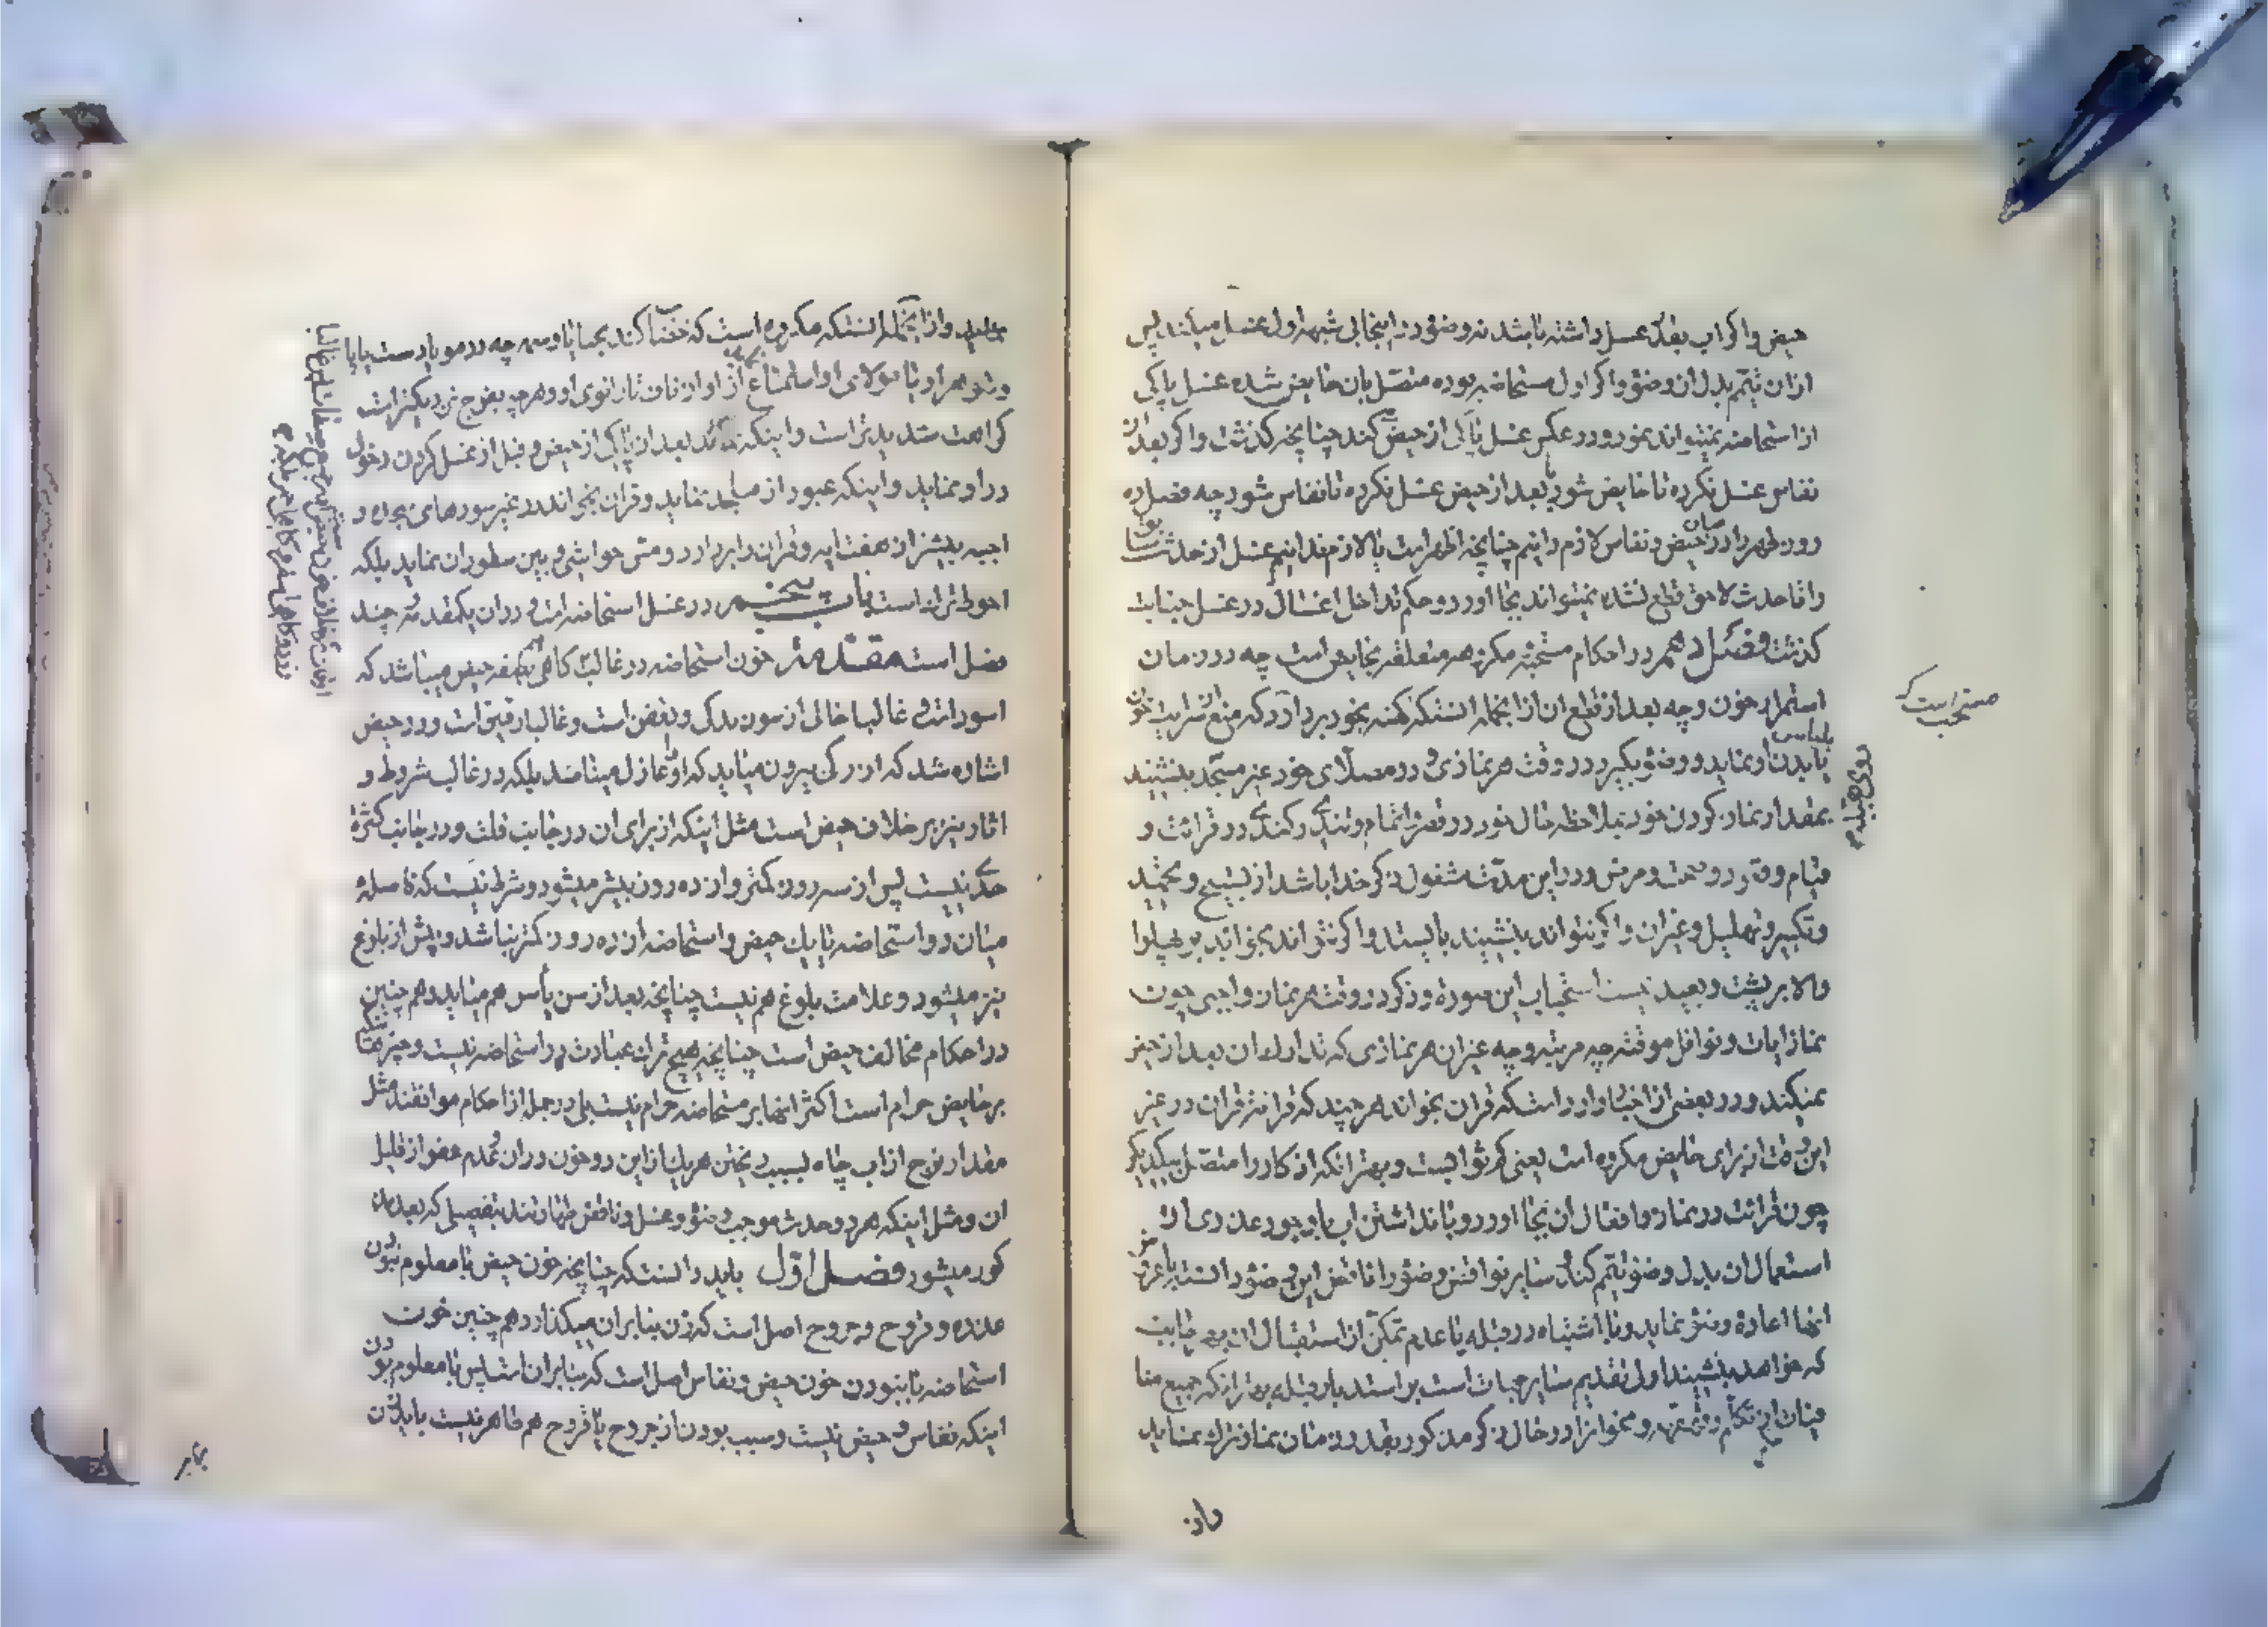 حیض و اگر آب بقدر غسل داشته باشد نه وضو در اینجا بی شبهه اول غسل میکند پس
از آن تیمم بدل از وضو و اگر اول مستحاضه بوده متصل بان حایض شده غسل پاکی
از استحاضه نمیتواند نمود و در عکس غسل پاکی از حیض کند چنانچه گذشت و اگر بعد از
نفاس غسل نکرده تا حایض شود یا بعد از حیض غسل نکرده تا نفاس شود چه فصل ده
روز طهر را در میان حیض و نفاس لازم دانیم چنانچه اظهر است یا لازم ندانیم غسل از حدث سابق
را تا حدث لاحق قطع نشده نمیتواند بجا آورد و حکم تداخل اغسال در غسل جنابت
گذشت فصل دهم در احکام مستحبه مکروهه متعلقه بحایض است چه در زمان
استمرار خون و چه بعد از قطع ان از انجمله انستکه کهنه بخود بردارد که منع از سرایت خون
مستحب است که
ببدن او نماید و وضو بگیرد در وقت هر نمازی و در مصلای خود غیر مسجد بنشیند
یا لباس
روی بقبله
بمقدار نماز کردن خود بملاحظه حال خود در قصر و اتمام و تندی و کندی در قرائت و
قیام و قعود و صحت و مرض و در این مدت مشغول ذکر خدا باشد از تسبیح و تحمید
و تکبیر و تهلیل و غیر ان و اگر نتواند بنشیند بایستد و اگر نتواند بخوابد بر پهلوها
والا بر پشت و بعید نیست استحباب این صورة و ذکر در وقت هر نماز واجبی چون
نماز ایات و نوافل موقته چه مرتبه و چه غیر ان هر نمازی که تدارک ان بعد از حیض
نمیکند و در بعضی از اخبار وارد است که قران بخواند هر چند که قرائت قران در غیر
این وقت از برای حایض مکروه است یعنی کم ثوابست و بهتر انکه اذکار را متصل بیکدیگر
چون قرائت در نماز و افعال ان بجا اورد و با نداشتن اب یا وجود عذری از
استعمال ان بدل وضو تیمم کند و سایر نواقض وضو را ناقض این وضو دانسته
انها اعادة وضو نماید و با اشتباه در قبله یا عدم تمکن از استقبال ان بهر جانب
که خواهد بنشیند و اولی تقدیم سایر جهات است بر استدبار قبله بهتر انکه جمیع منا
فیات از تکلم و قهقهه و نحو انرا در حال ذکر مذکور بقدر زمان نماز ترک نماید
و از
و از انجمله انستکه مکروه است که خضاب کند بحنا یا وسمه چه در مو یا دست یا پا
و شوهر او یا مولای او استمتاع از او از ناف تا زانوی او و هر چه بفرج نزدیکتر است
کراهت شدیدتر است و اینکه بعد از پاکی از حیض و قبل از غسل کردن دخول
در او نماید و اینکه عبور از مساجد نماید و قران بخواند در غیر سورهای سجده و
اجبه بیشتر از هفت ایه و قران را بردارد و مس حواشی و بین سطور ان نماید بلکه
احوط ترک است باب پنجم در غسل استحاضه است و در ان یکمقدمه و چند
فصل است مقدمه خون استحاضه در غالب گاهی بصفه حیض میباشد که
اسود است و غالبا خالی از سوزندگی و بغض است و غالبا رقیق است و در حیض
اشاره شد که از رگی بیرون میاید که او را عازل مینامند بلکه در غالب شروط و
اثار نیز بر خلاف حیض است مثل اینکه از برای ان در جانب قلت و در جانب کثرة
حدی نیست پس از سه روز کمتر و از ده روز بیشتر میشود و شرط نیست که فاصله
میان دو استحاضه یا یک حیض و استحاضه از ده روز کمتر نباشد و پیش از بلوغ
نیز میشود و علامت بلوغ هم نیست چنانچه بعد از سن یأس هم میاید و هم چنین
در احکام مخالف حیض است چنانچه هیچ ترک عبادت در استحاضه نیست و چیزهائیکه
بر حایض حرام است اکثر انها بر مستحاضه حرام نیست بلی در جمله از احکام موافقند مثل
مقدار نزح از اب چاه بسبب ریختن هر یک از این دو خون در ان و عدم عفو از قلیل
ان و مثل اینکه هر دو حدث موجب وضو و غسل و ناقض طهارتند بتفصیلی که بعد مذ
کور میشود فصل اول باید دانست که چنانچه خون حیض نا معلوم نبودن
عذره و قروح و جروح اصل است که زن بنا بر ان میگذارد هم چنین خون
استحاضه با نبودن خون حیض و نفاس اصل است که بنا بران است پس با معلوم بودن
اینکه نفاس و حیض نیست و سبب بودن از جروح یا قروح هم ظاهر نیست باید ان
بنابر